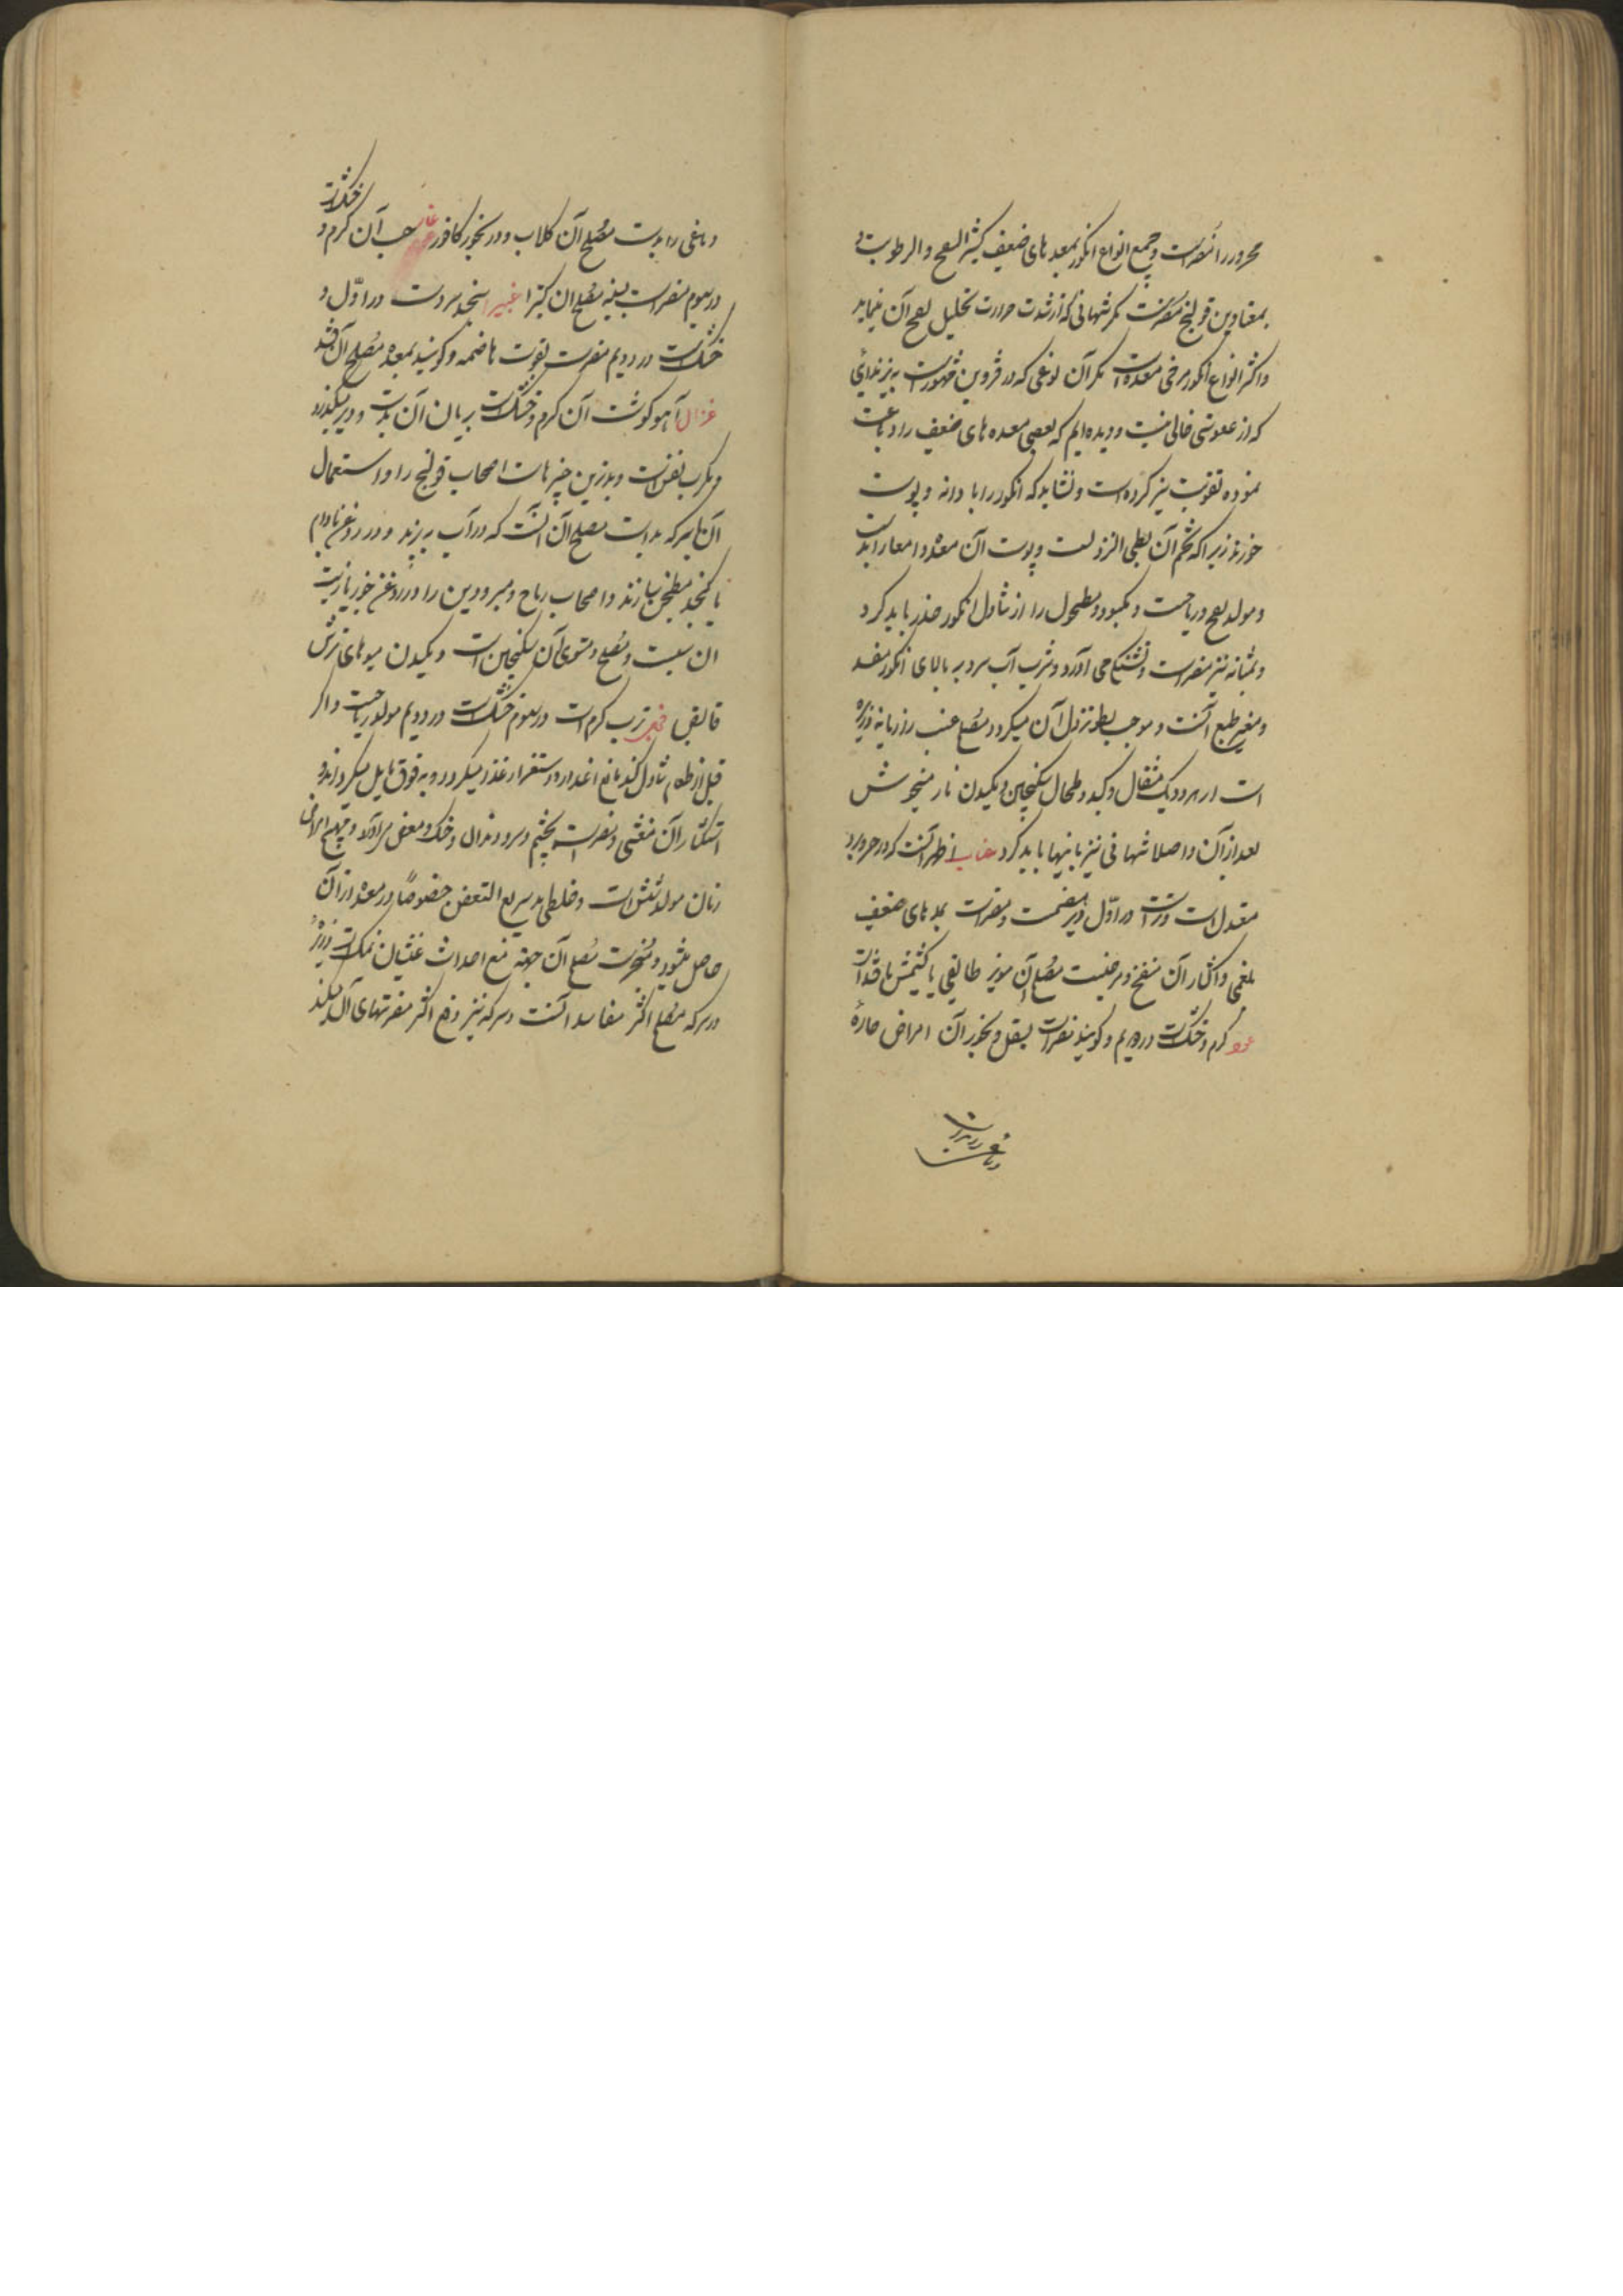 محرور را مضر است و جمیع انواع انکور بمعدهای ضعیف کثیر النفخ و الرطوبت و
بمعتادین قولنج مضر است مکر شهانی که از شدت حرارت تحلیل نفخ آن نماید
و اکثر انواع انکور مرخی معده است مکر آن نوعی که در قزوین مشهور است
که از عفوصتی خالی نیست و دیده ایم که بعضی معده های ضعیف را دباغت
نموده تقویت نیز کرده است و نشاید که انکور را با دانه و پوست
خورند زیرا که تخم آن بطی النزول است و پوست آن معده و امعا را بد است
و مولد نفخ و ریاحست و مکبود و مطحول را از تناول انکور حذر باید کرد
و بمثانه نیز مضر است و تشنکی می آورد و شرب آب سرد بر بالای انکور مفسد
و مغیر طبع آنست و موجب بطو نزول آن میکردد مصلح عنب رازیانه و زیره
است از هر دو یک مثقال و کبد و طحال سکنجبین و مکیدن نار میخوش
بعد از آن و اصلاح شهانی نیز باینها باید کرد عناب اظهر آنست که در حر و برد
معتدل است و تر است در اول دیر هضمست و مضر است بمعدهای ضعیف
بلغمی و اکثار آن منفخ و مرخیست مصلح آن مویز طایفی یا کشمش یا قند است
عود کرم و خشک است در دویم و کویند مضر است بسفل و بخور آن امراض حاره
دماغی را بد است
دماغی را بد است مصلح آن کلاب و در بخور کافور غار حب آن کرم و خشک است
در سیوم مضر است بسینه مصلح آن کتیرا غبیرا سنجد سرد است در اول و
خشک است در دویم مضر است بقوت هاضمه و کویند بمعده مصلح آن قند
غزال آهو کوشت آن کرم و خشک است بریان آن بد است و دیر میکذرد
و مکرب نفس است و بدترین چیزهاست اصحاب قولنج را و استعمال
آن با سرکه بد است مصلح آن آنست که در آب بپزند و در روغن بادام
یا کنجد مطجن سازند و اصحاب ریاح و مبرودین را در روغن جوز یا زیت
آن سبت و مصلح و مشوی آن سکنجبین است و مکیدن میوهای ترش
قابض فجل ترب کرم است در سیوم خشک است در دویم مولد ریاحست و اکر
قبل از طعام تناول کنند مانع انحدار و استقرار غذا میکردد و به فوق مایل میکرداند و
استکثار آن مغثی و مضر است بچشم و سر و دندان و حنک و مغص می آورد و مهیج امراض
زنان مولد شپش است و خلطی بد سریع التعفن خصوصا در معده از آن
حاصل میشود و مبخر است مصلح آن جهة منع احداث غثیان نمک است و زیره
و سرکه مصلح اکثر مفاسد آنست و سرکه نیز دفع اکثر مضرتهای آن میکند